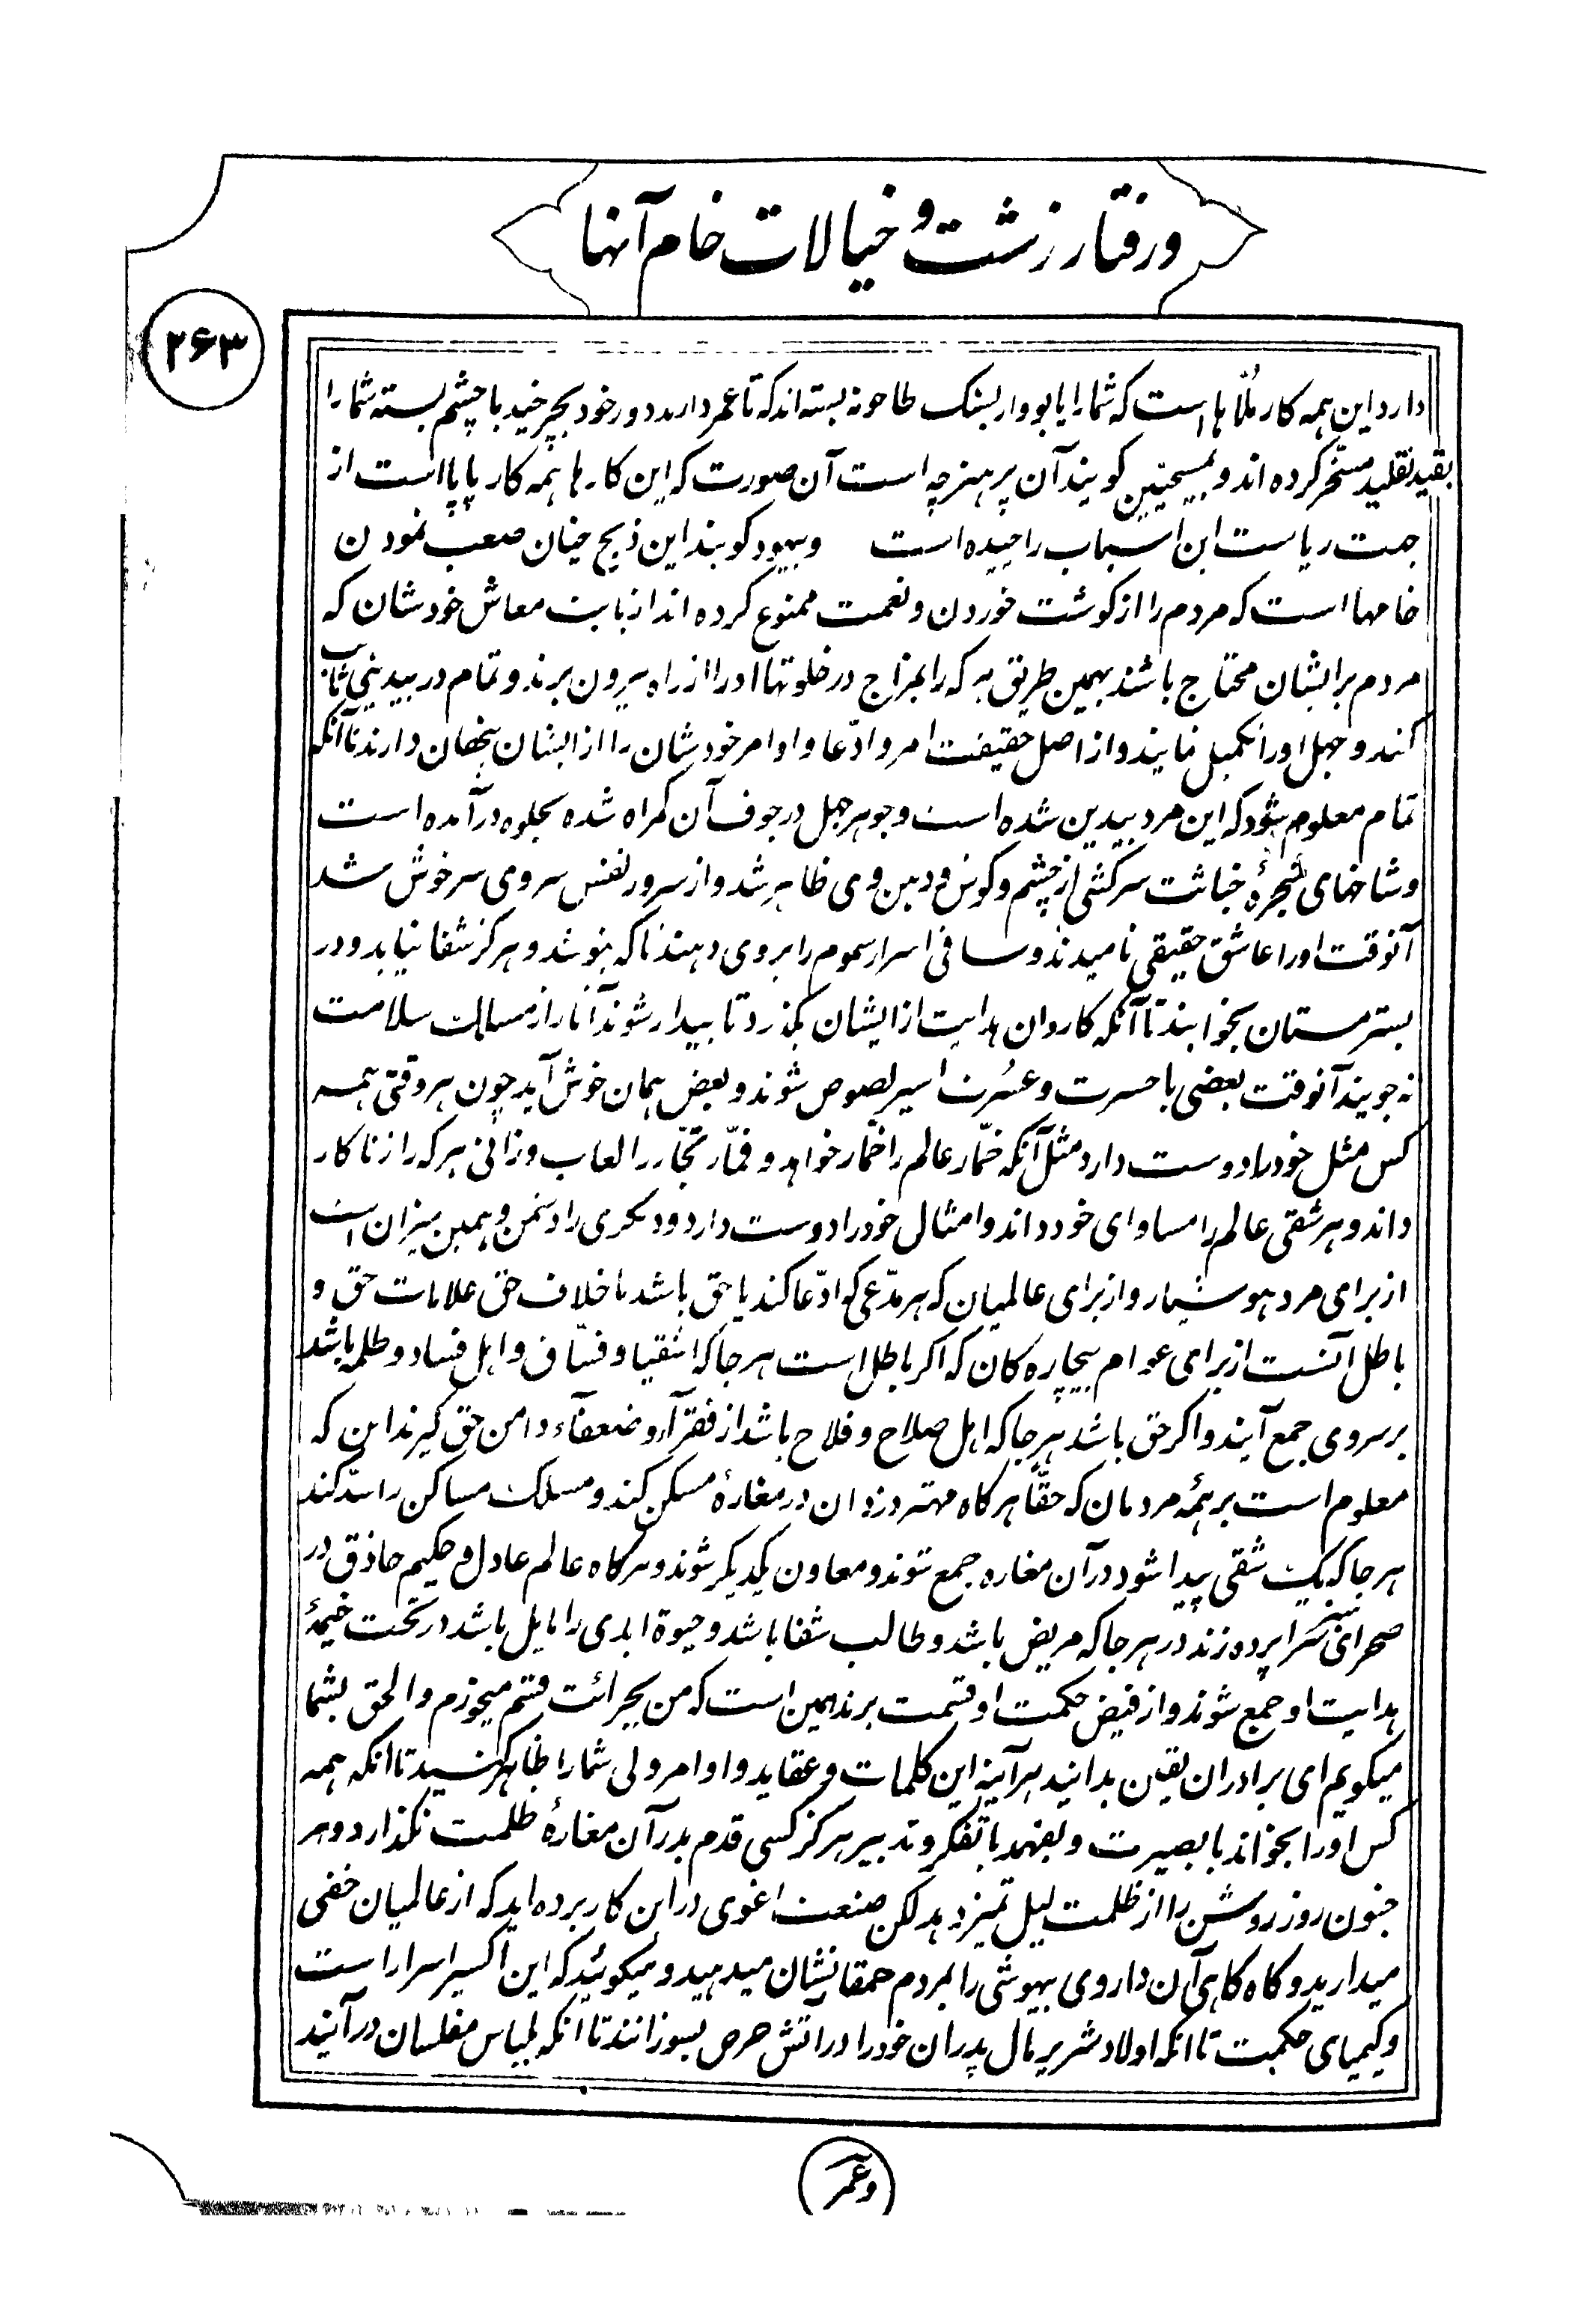 ورفتار زشت و خیالات خام آنها
۲۶۳
دارد این همه کار ملّاها است که شما را یابووار بسنک طاحونه بسته‌اند که تا عمر دارید دور خود بچرخید با چشم بسته شما را
بقید تقلید مسخّر کرده‌اند و بمسیحیین کویند آن پرهنر چه است آن صورت که این کارها همه کار پاپا است از
جهت ریاست این اسباب را چیده است و بیهود کویند این ذبح چنان صعب نمودن
خامها است که مردم را از کوشت خوردن و نعمت ممنوع کرده‌اند از بابت معاش خودشان که
مردم برایشان محتاج باشند بهمین طریق هر که را بمزاج در خلوتها او را از راه بیرون برند و تمام در بیدینی ثابت
کنند و جهل او را تکمیل نمایند و از اصل حقیقت امر و ادّعا و اوامر خودشان را از ایشان پنهان دارند تا آنکه
تمام معلوم شود که این مرد بیدین شده است و جوهر جهل در جوف آن کمراه شده بجلوه درآمده است
و شاخهای شجرهٔ خباثت سرکشی از چشم و کوش و دهن وی ظاهر شد و از سرور نفس سر وی سرخوش شد
آنوقت او را عاشق حقیقی نامیدند و ساقی اسرار سموم را بروی دهند تا که بنوشد و هرکز شفا نیابد و در
بستر مستان بخوابند تا آنکه کاروان هدایت از ایشان بکذرد تا بیدار شوند آثار از مسالک سلامت
نه جویند آنوقت بعضی با حسرت و عسرت اسیر لصوص شوند و بعض همان خوش آید چون هر وقتی همه
کس مثل خود را دوست دارد مثل آنکه خمّار عالم را خمّار خواهد و قمّار تجّار را لعاب و زانی هر که را زناکار
داند و هر شقی عالم را مساوای خود داند و امثال خود را دوست دارد و دیکری را دشمن و همین میزان است
از برای مرد هوشیار و از برای عالمیان که هر مدّعی که ادّعا کند یا حق باشد یا خلاف حق علامات حق و
باطل آنست از برای عوام بیچاره کان که اکر باطل است هر جا که اشقیا و فسّاق و اهل فساد و ظلمه باشد
بر سر وی جمع آیند و اکر حق باشد هر جا که اهل صلاح و فلاح باشد از فقرآء و ضعفآء دامن حق کیرند این که
معلوم است بر همهٔ مردمان که حقّاً هر کاه مهتر دزدان در مغارهٔ مسکن کند و مسلک مساکن را سدّ کند
هر جا که یک شقی پیدا شود در آن مغاره جمع شوند و معاون یکدیکر شوند و هر کاه عالم عادل و حکیم حاذق در
صحرائی سراپرده زند در هر جا که مریض باشد و طالب شفا باشد و حیوة ابدی را مایل باشد در تحت خیمهٔ
هدایت او جمع شوند و از فیض حکمت او قسمت برند همین است که من بجرائت قسم میخورم و الحق بشما
میکویم ای برادران یقین بدانید هر آینه این کلمات و عقاید و اوامر ولی شما را ظاهر کنید تا انکه همه
کس او را بخواند با بصیرت و بفهمد با تفکر و تدبیر هرکز کسی قدم بدر آن مغارهٔ ظلمت نکذارد و هر
جنون روز روشن را از ظلمت لیل تمیز دهد لکن صنعت اغوی در این کار برده‌اید که از عالمیان خفی
میدارید و کاه کاهی آن داروی بیهوشی را بمردم حمقا نشان میدهید و میکوئید که این اکسیر اسرار است
و کیمیای حکمت تا انکه اولاد شریر مال پدران خود را در آتش حرص بسوزانند تا انکه بلباس مفلسان درآیند
وعمر